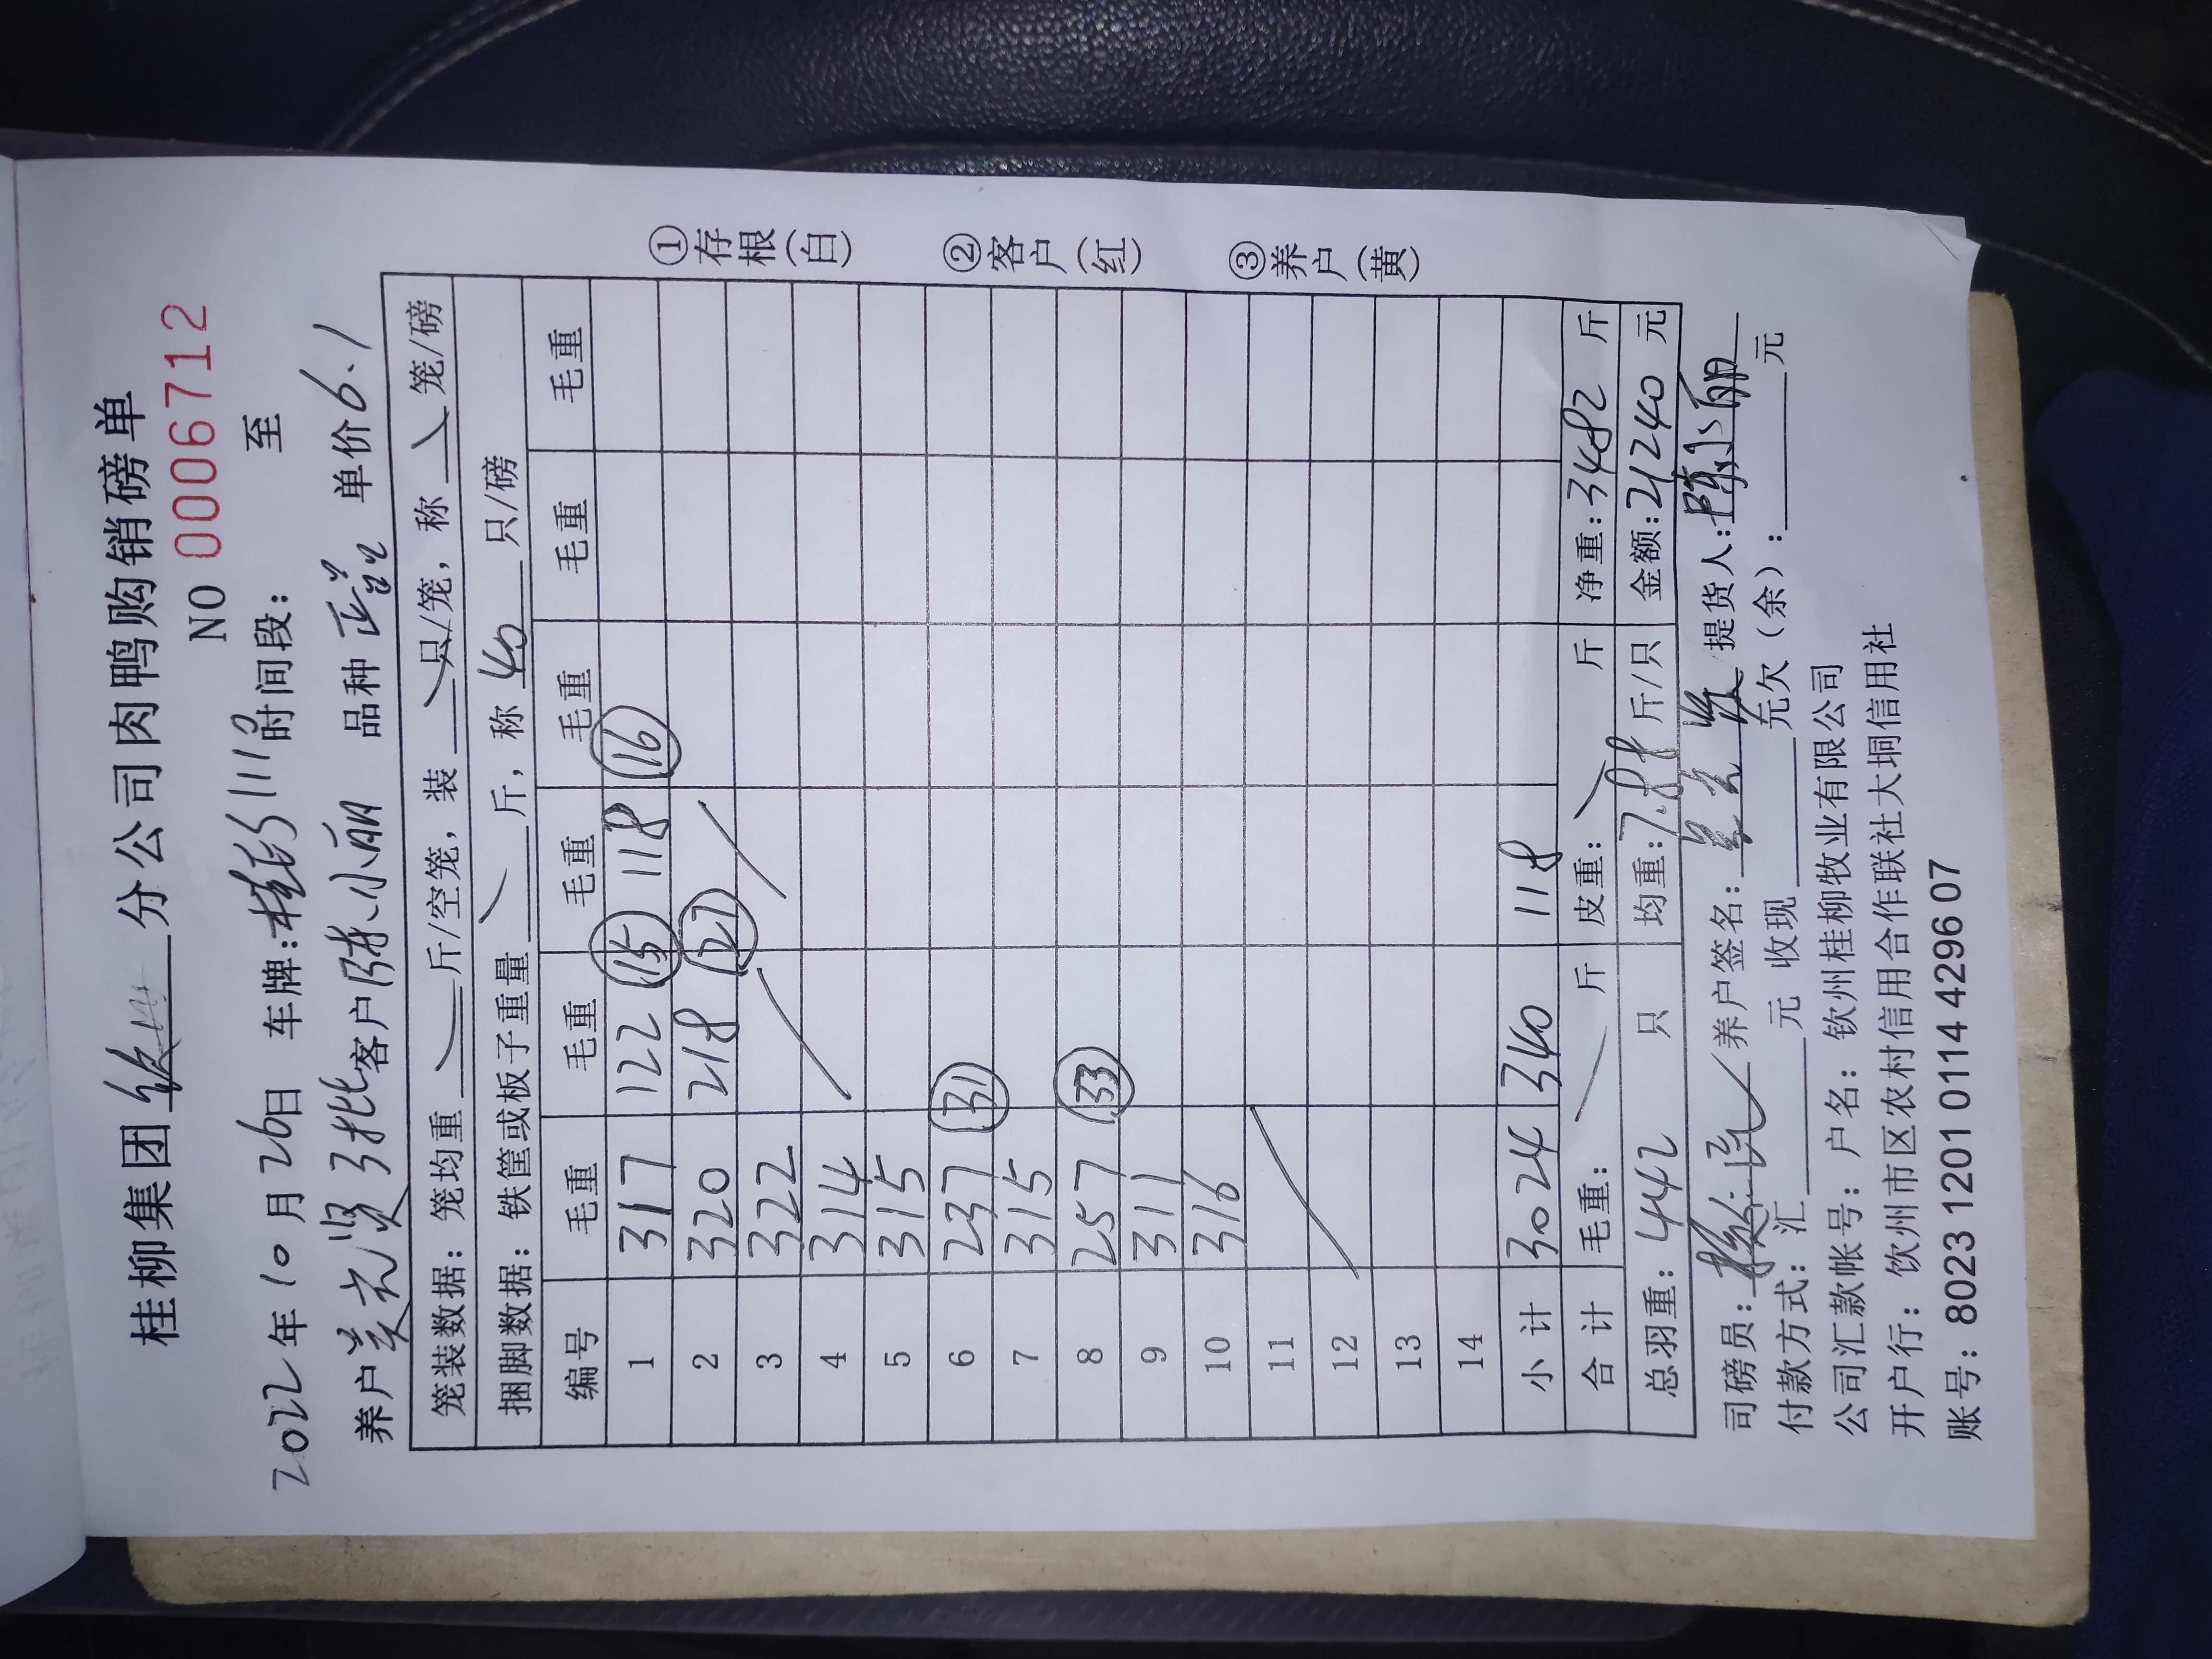 桂柳集团 钦州 分公司肉鸭购销磅单
NO 0006712
2022年10月26日 车牌: 时间段: 至
养户 客户陈小丽 品种 单价6.1
笼装数据: 笼均重 斤/空笼, 装 只/笼, 称 笼/磅
捆脚数据: 铁筐或板子重量 斤, 称 40 只/磅
编号 毛重 毛重 毛重 毛重 毛重 毛重
1 317 122 (15) 118 (16)
2 320 218 (27)
3 322
4 314
5 315
6 237 (31)
7 315
8 257 (33)
9 311
10 316
11
12
13
14
小计 3024 340 118
合计 毛重: 斤 皮重: 斤 净重: 3482 斤
总羽重: 442 只 均重: 7.88 斤/只 金额: 21240 元
司磅员: 养户签名: 提货人: 陈小丽
付款方式: 汇 元 收现 元欠(余): 元
公司汇款帐号: 户名: 钦州桂柳牧业有限公司
开户行: 钦州市区农村信用合作联社大垌信用社
账号: 8023 1201 0114 4296 07
①存根(白)
②客户(红)
③养户(黄)